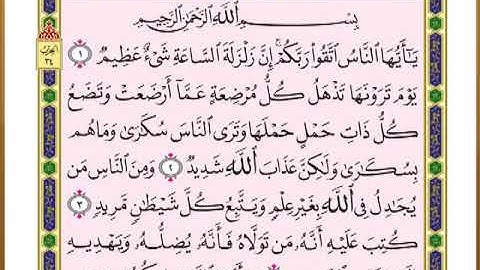 الحزب
٣٤
بِسْمِ اللَّهِ الرَّحْمَٰنِ الرَّحِيمِ
يَٰٓأَيُّهَا ٱلنَّاسُ ٱتَّقُوا۟ رَبَّكُمْ ۚ إِنَّ زَلْزَلَةَ ٱلسَّاعَةِ شَىْءٌ عَظِيمٌ ١
يَوْمَ تَرَوْنَهَا تَذْهَلُ كُلُّ مُرْضِعَةٍ عَمَّآ أَرْضَعَتْ وَتَضَعُ
كُلُّ ذَاتِ حَمْلٍ حَمْلَهَا وَتَرَى ٱلنَّاسَ سُكَٰرَىٰ وَمَا هُم
بِسُكَٰرَىٰ وَلَٰكِنَّ عَذَابَ ٱللَّهِ شَدِيدٌ ٢ وَمِنَ ٱلنَّاسِ مَن
يُجَٰدِلُ فِى ٱللَّهِ بِغَيْرِ عِلْمٍ وَيَتَّبِعُ كُلَّ شَيْطَٰنٍ مَّرِيدٍ ٣
كُتِبَ عَلَيْهِ أَنَّهُۥ مَن تَوَلَّاهُ فَأَنَّهُۥ يُضِلُّهُۥ وَيَهْدِيهِ